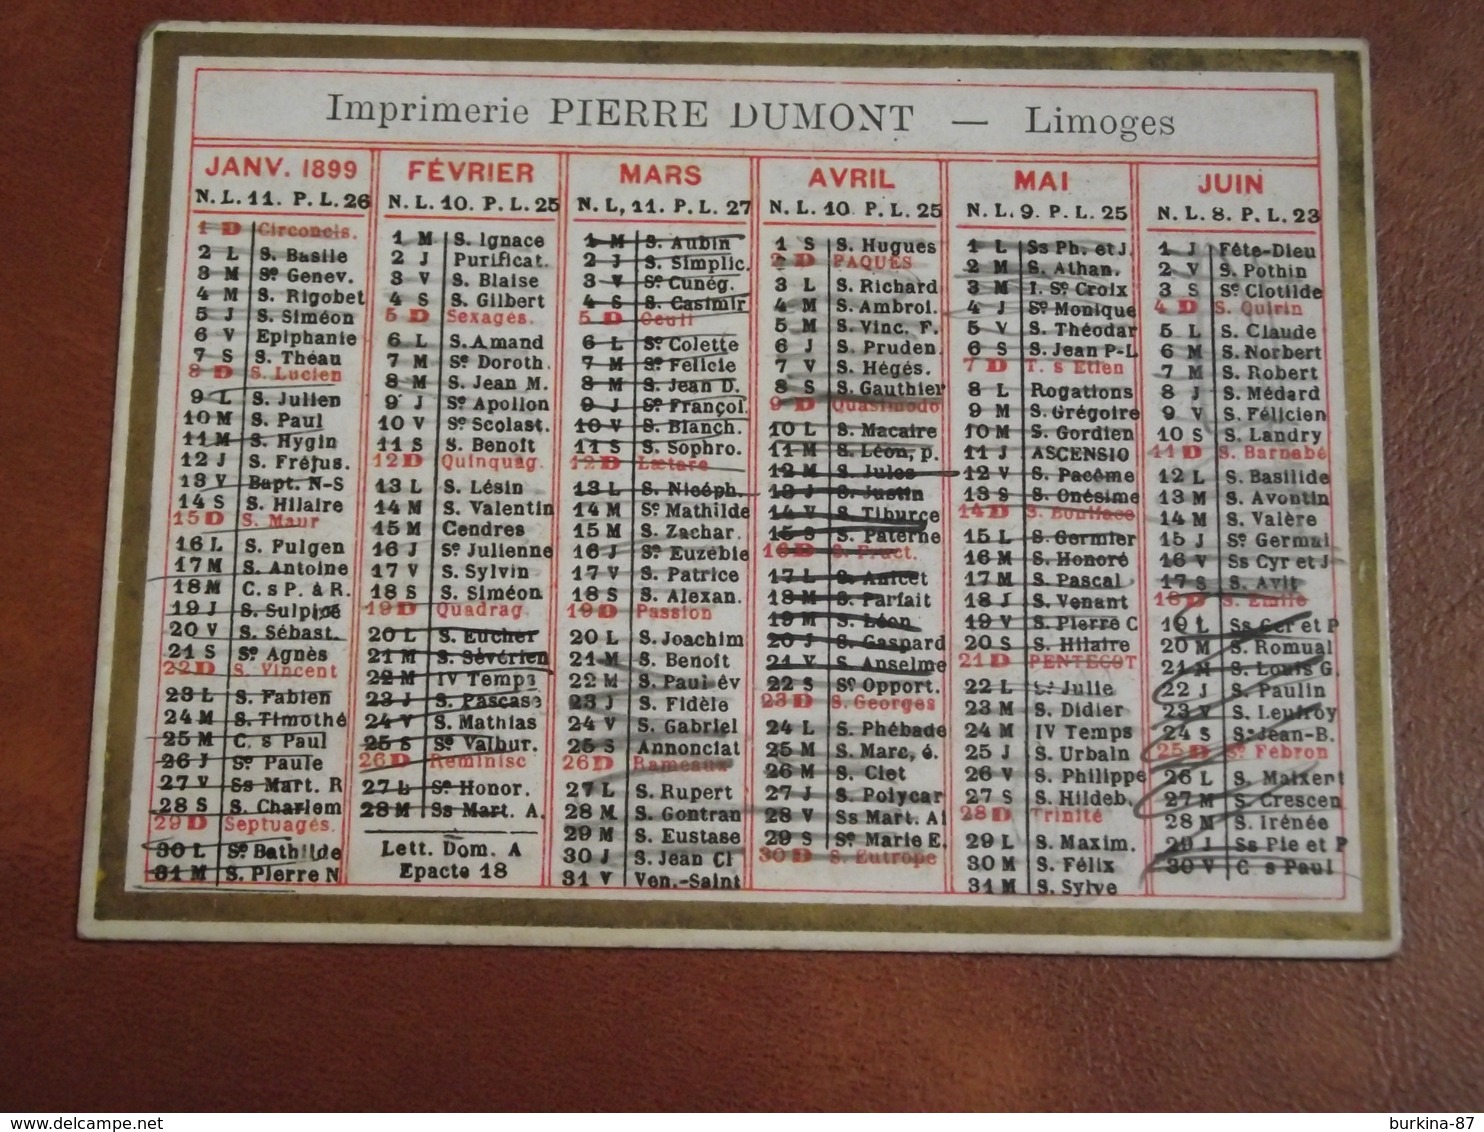 Imprimerie PIERRE DUMONT — Limoges
JANV. 1899
N. L. 11. P. L. 26
1 D Circoncis.
2 L S. Basile
3 M Se Genev.
4 M S. Rigobet
5 J S. Siméon
6 V Epiphanie
7 S S. Théau
8 D S. Lucien
9 L S. Julien
10 M S. Paul
11 M S. Hygin
12 J S. Fréjus.
13 V Bapt. N-S
14 S S. Hilaire
15 D S. Maur
16 L S. Fulgen
17 M S. Antoine
18 M C. s P. à R.
19 J S. Sulpice
20 V S. Sébast.
21 S Se Agnès
22 D S. Vincent
23 L S. Fabien
24 M S. Timothé
25 M C. s Paul
26 J Se Paule
27 V Ss Mart. R
28 S S. Charlem
29 D Septuagés.
30 L Se Bathilde
31 M S. Pierre N
FÉVRIER
N. L. 10. P. L. 25
1 M S. Ignace
2 J Purificat.
3 V S. Blaise
4 S S. Gilbert
5 D Sexagés.
6 L S. Amand
7 M Se Doroth.
8 M S. Jean M.
9 J Se Apollon
10 V Se Scolast.
11 S S. Benoît
12 D Quinquag.
13 L S. Lésin
14 M S. Valentin
15 M Cendres
16 J Se Julienne
17 V S. Sylvin
18 S S. Siméon
19 D Quadrag.
20 L S. Eucher
21 M S. Sévérien
22 M IV Temps
23 J S. Pascase
24 V S. Mathias
25 S Se Valbur.
26 D Reminisc
27 L Se Honor.
28 M Ss Mart. A.
Lett. Dom. A
Epacte 18
MARS
N. L, 11. P. L. 27
1 M S. Aubin
2 J S. Simplic.
3 V Se Cunég.
4 S S. Casimir
5 D Oculi
6 L Se Colette
7 M Se Félicie
8 M S. Jean D.
9 J Se Françoi.
10 V S. Blanch.
11 S S. Sophro.
12 D Lætare
13 L S. Nicéph.
14 M Se Mathilde
15 M S. Zachar.
16 J Se Euzébie
17 V S. Patrice
18 S S. Alexan.
19 D Passion
20 L S. Joachim
21 M S. Benoît
22 M S. Paul év
23 J S. Fidèle
24 V S. Gabriel
25 S Annonciat
26 D Rameaux
27 L S. Rupert
28 M S. Gontran
29 M S. Eustase
30 J S. Jean Cl
31 V Ven.-Saint
AVRIL
N. L. 10. P. L. 25
1 S S. Hugues
2 D PAQUES
3 L S. Richard
4 M S. Ambroi.
5 M S. Vinc. F.
6 J S. Pruden.
7 V S. Hégés.
8 S S. Gauthier
9 D Quasimodo
10 L S. Macaire
11 M S. Léon, p.
12 M S. Jules
13 J S. Justin
14 V S. Tiburce
15 S S. Paterne
16 D S. Fruct.
17 L S. Anicet
18 M S. Parfait
19 M S. Léon
20 J S. Gaspard
21 V S. Anselme
22 S Se Opport.
23 D S. Georges
24 L S. Phébade
25 M S. Marc, é.
26 M S. Clet
27 J S. Polycar
28 V Ss Mart. Al
29 S Se Marie E.
30 D S. Eutrope
MAI
N. L. 9. P. L. 25
1 L Ss Ph. et J.
2 M S. Athan.
3 M I. Se Croix
4 J Se Monique
5 V S. Théodar
6 S S. Jean P-L
7 D T. s Etien
8 L Rogations
9 M S. Grégoire
10 M S. Gordien
11 J ASCENSIO
12 V S. Pacôme
13 S S. Onésime
14 D S. Boniface
15 L S. Germier
16 M S. Honoré
17 M S. Pascal
18 J S. Venant
19 V S. Pierre C
20 S S. Hilaire
21 D PENTECOT
22 L Se Julie
23 M S. Didier
24 M IV Temps
25 J S. Urbain
26 V S. Philippe
27 S S. Hildeb.
28 D Trinité
29 L S. Maxim.
30 M S. Félix
31 M S. Sylve
JUIN
N. L. 8. P. L. 23
1 J Fête-Dieu
2 V S. Pothin
3 S Se Clotilde
4 D S. Quirin
5 L S. Claude
6 M S. Norbert
7 M S. Robert
8 J S. Médard
9 V S. Félicien
10 S S. Landry
11 D S. Barnabé
12 L S. Basilide
13 M S. Avontin
14 M S. Valère
15 J S. Germai
16 V Ss Cyr et J
17 S S. Avit
18 D S. Emile
19 L Ss Ger et P
20 M S. Romual
21 M S. Louis G.
22 J S. Paulin
23 V S. Leufroy
24 S S. Jean-B.
25 D Se Febron
26 L S. Maixent
27 M S. Crescen
28 M S. Irénée
29 J Ss Pie et P
30 V C s Paul
burkina-87